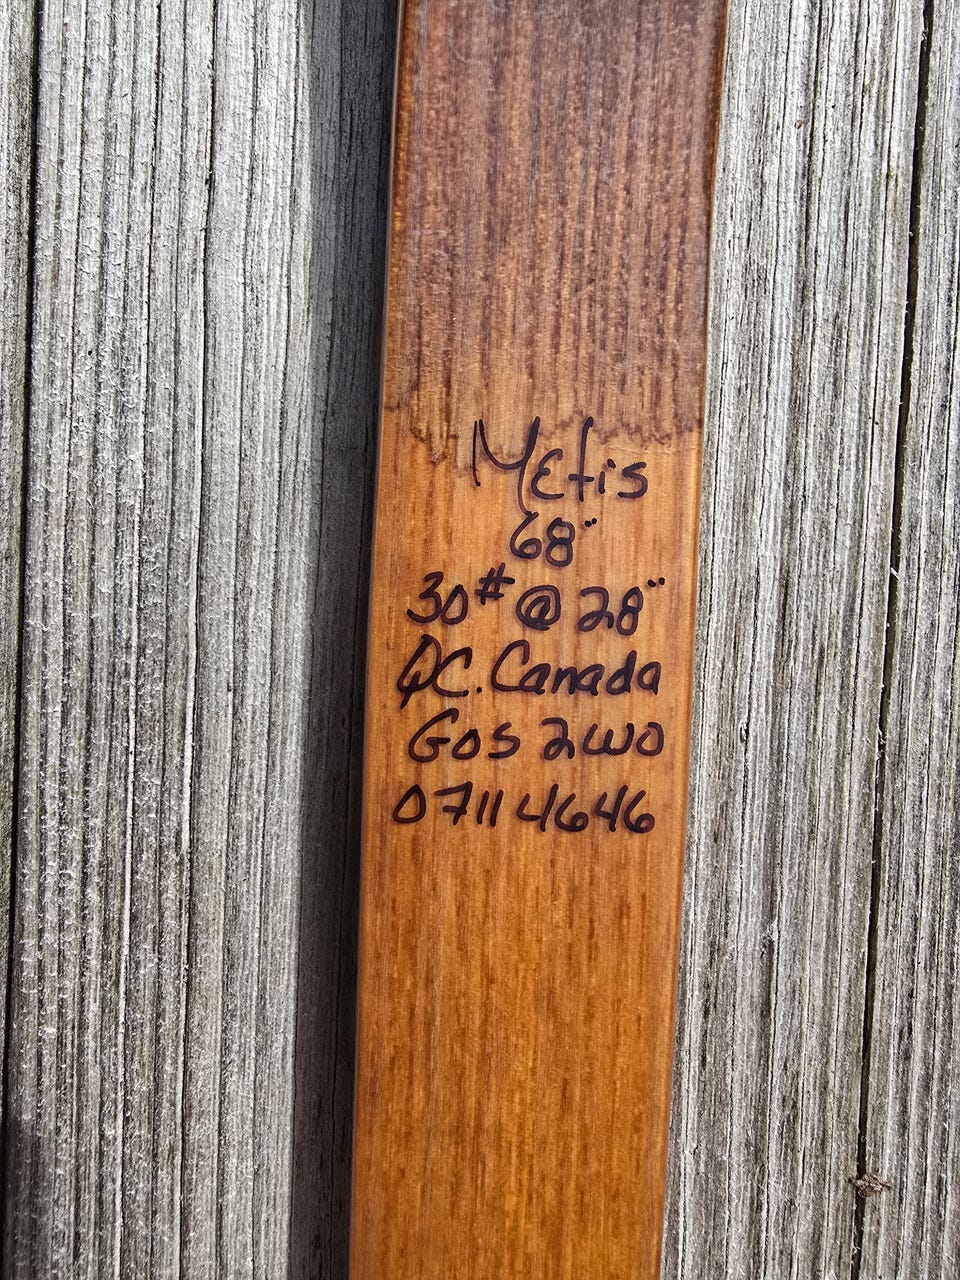 Metis
68"
30# @ 28"
QC. Canada
GOS 2WO
0711 4646